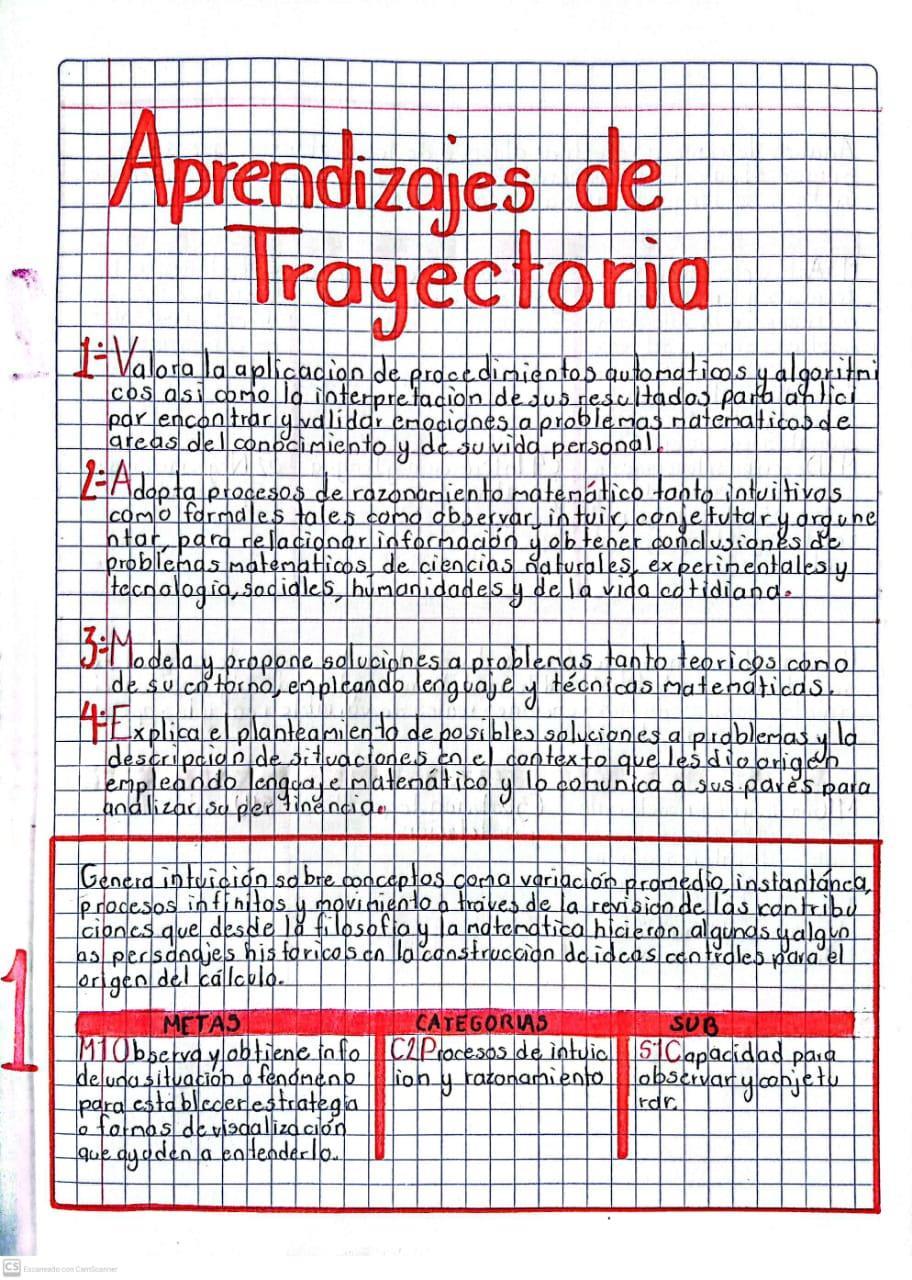 Aprendizajes de
Trayectoria
1- Valora la aplicacion de procedimientos automaticos y algoritmi
cos asi como la interpretacion de sus resultados para antici
par encontrar y validar emociones a problemas matematicos de
areas del conocimiento y de su vida personal.
2- Adopta procesos de razonamiento matemático tanto intuitivos
como formales tales como observar, intuir, conjetutar y argume
ntar, para relacionar información y obtener conclusiones de
problemas matemáticos, de ciencias naturales, experimentales y
tecnología, sociales, humanidades y de la vida cotidiana.
3- Modela y propone soluciones a problemas tanto teoricos como
de su entorno, empleando lenguaje y técnicas matematicas.
4- Explica el planteamiento de posibles soluciones a problemas y la
descripción de situaciones en el contexto que les dio origen
empleando lenguaje matemático y lo comunica a sus pares para
analizar su pertinencia.
Genera intuición sobre conceptos como variación promedio, instantánea,
procesos infinitos y movimiento a traves de la revision de las contribu
ciones que desde la filosofia y la matematica hicieron algunos y algun
as personajes historicos en la construccion de ideas centrales para el
origen del cálculo.
METAS CATEGORIAS SUB
M1 Observa y obtiene info C2 Procesos de intuic S1 Capacidad para
de una situación o fenómeno ion y razonamiento observar y conjetu
para establecer estrategia rar.
o formas de visualización
que ayuden a entenderlo.
1
CS Escaneado con CamScanner